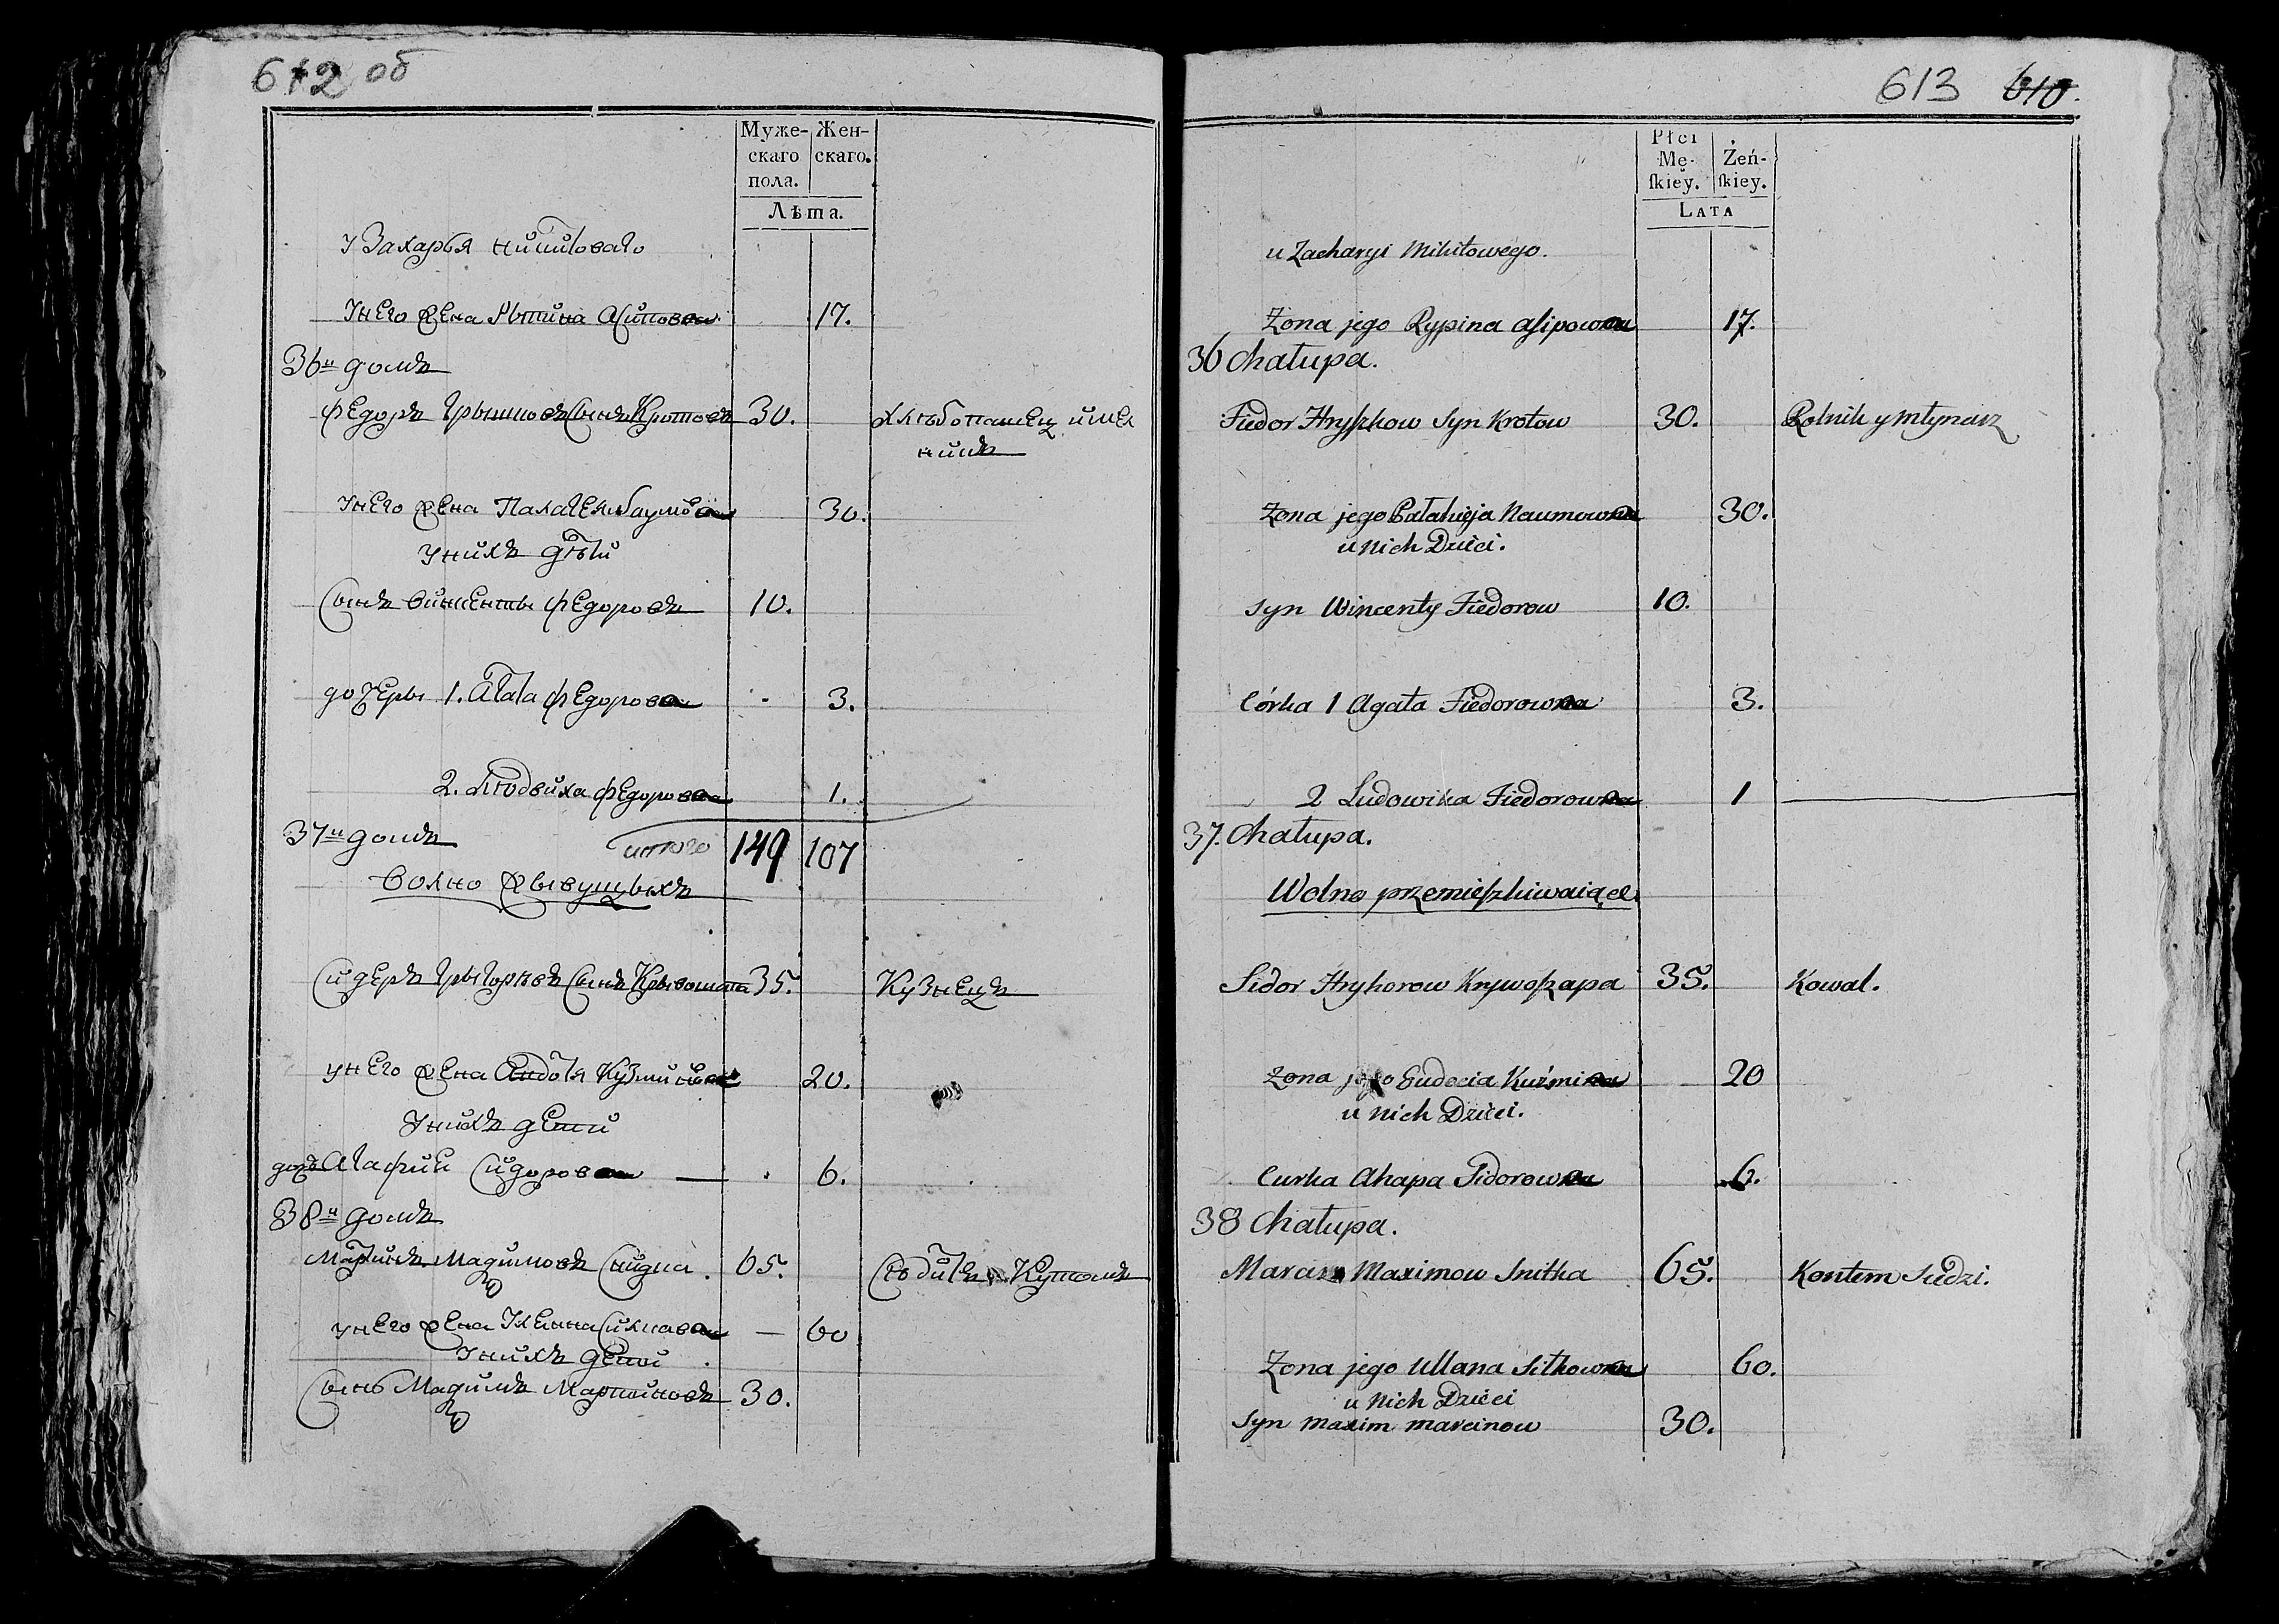 612 об
Муже- Жен-
скаго скаго.
пола.
Лѣта.
У Захарья Никитоваго
У него жена Рыпина Асипова 17.
36й домъ
Федоръ Грышковъ Сынъ Кротовъ 30. Хлѣбопашец и мел
никъ
У него жена Палагея Наумова 30.
У нихъ дѣти
Сынъ Винценты Федоровъ 10.
дочеры 1. Агата Федорова - 3.
2. Людвика Федорова 1.
37й домъ
итого 149 107
Волно живущыхъ
Сидеръ Грыгорьевъ Сынъ Крывошапа 35. Кузнецъ
у него жена Авдотя Кузмина 20.
У нихъ дети
дочь Агафия Сидорова 6.
38й домъ
Мартинъ Мацимовъ Снидка 65. Сѣдитъ Кутомъ
у него жена Улянна Силкова — 60
У нихъ дети
Сынъ Мацимъ Мартиновъ 30.
613 610.
Płci
Mę- Żeń-
ſkiey. ſkiey.
LATA
u Zacharyi Mikitowego.
Zona jego Rypina Asipowna 17.
36 Chałupa.
Fiedor Hryszkow Syn Krotow 30. Rolnik y Młynarz
Zona jego Pałahieja Naumowna 30.
u nich Dzieci.
Syn Wincenty Fiedorow 10.
Córka 1 Agata Fiedorowna 3.
2 Ludowika Fiedorowna 1
37. Chałupa.
Wolno przemieszkiwaiące
Sidor Hryhorow Krywoszapa 35. Kowal.
Zona jego Eudocia Kuźmina 20
u nich Dzieci.
Curka Ahapa Sidorowna 6.
38 Chałupa.
Marcin Maximow Snitka 65. Kontem Siedzi.
Zona jego Ullana Sitkowna 60.
u nich Dzieci
Syn Maxim Marcinow 30.